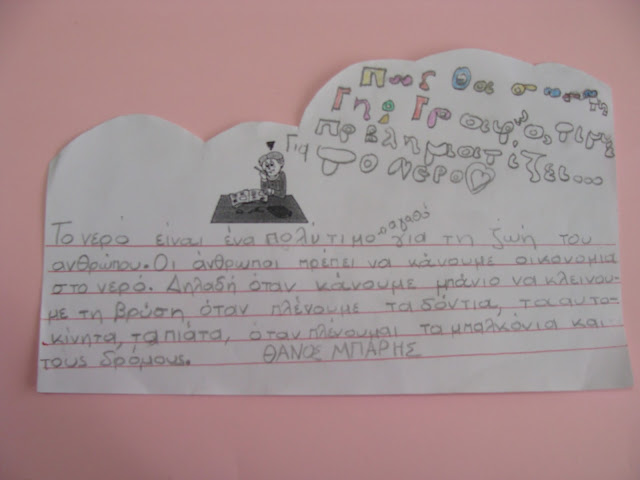 Πως θα σωσουμε τη
Γη; Γράφω ό,τι με
προβλημματίζει...
Για το νερό
Το νερό είναι ένα πολύτιμο αγαθό για τη ζωή του
ανθρώπου. Οι άνθρωποι πρέπει να κάνουμε οικονομία
στο νερό. Δηλαδή όταν κάνουμε μπάνιο να κλεινου-
με τη βρύση όταν πλένουμε τα δόντια, τα αυτο-
κίνητα, τα πιάτα, όταν πλένουμαι τα μπαλκόνια και
τους δρόμους. ΘΑΝΟΣ ΜΠΑΡΗΣ